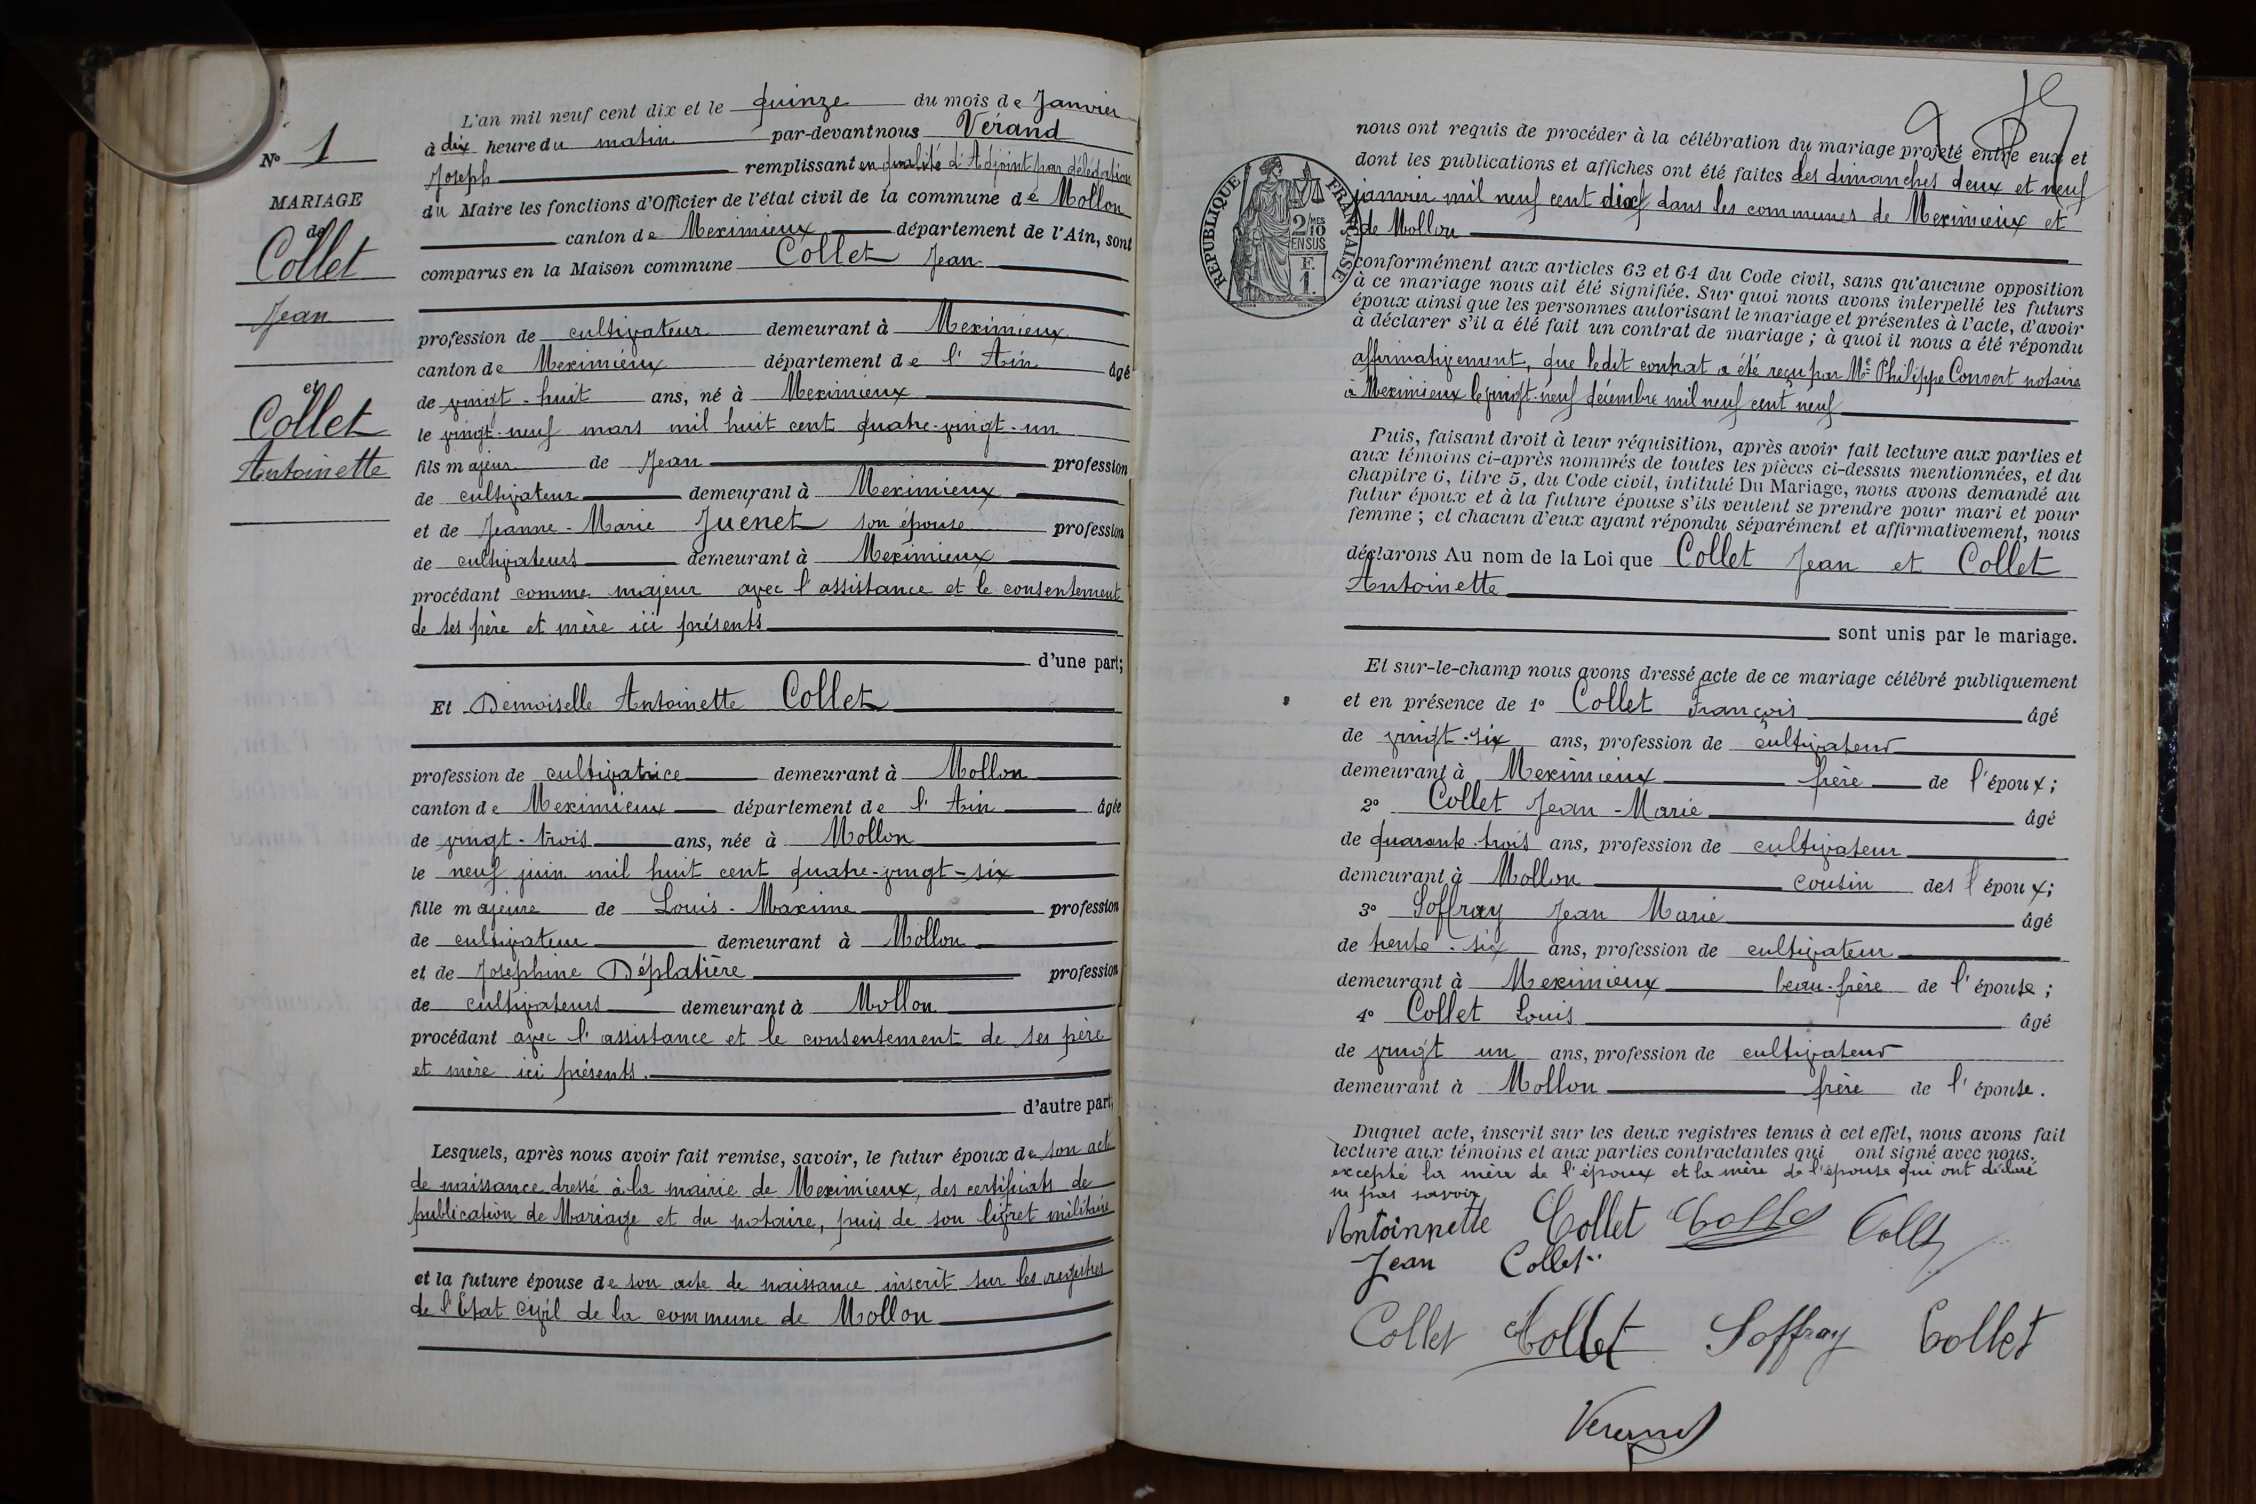 N° 1
MARIAGE
de
Collet
Jean
et
Collet
Antoinette
L'an mil neuf cent dix et le quinze du mois de Janvier
à dix heure du matin par-devant nous Vérand
Joseph remplissant en qualité d'Adjoint par délégation
du Maire les fonctions d'Officier de l'état civil de la commune de Mollon
canton de Meximieux département de l'Ain, sont
comparus en la Maison commune Collet Jean
profession de cultivateur demeurant à Meximieux
canton de Meximieux département de l'Ain âgé
de vingt-huit ans, né à Meximieux
le vingt-neuf mars mil huit cent quatre-vingt-un
fils majeur de Jean profession
de cultivateur demeurant à Meximieux
et de Jeanne-Marie Juenet son épouse profession
de cultivateurs demeurant à Meximieux
procédant comme majeur avec l'assistance et le consentement
de ses père et mère ici présents
d'une part;
Et Demoiselle Antoinette Collet
profession de cultivatrice demeurant à Mollon
canton de Meximieux département de l'Ain âgée
de vingt-trois ans, née à Mollon
le neuf juin mil huit cent quatre-vingt-six
fille majeure de Louis-Maxime profession
de cultivateur demeurant à Mollon
et de Joséphine Déplatière profession
de cultivateurs demeurant à Mollon
procédant avec l'assistance et le consentement de ses père
et mère ici présents.
d'autre part;
Lesquels, après nous avoir fait remise, savoir, le futur époux de son acte
de naissance dressé à la mairie de Meximieux, des certificats de
publication de Mariage et du notaire, puis de son livret militaire
et la future épouse de son acte de naissance inscrit sur les registres
de l'Etat civil de la commune de Mollon
RÉPUBLIQUE FRANÇAISE
2 MES
10
EN SUS
F.
1.
nous ont requis de procéder à la célébration du mariage projeté entre eux et
dont les publications et affiches ont été faites les dimanches deux et neuf
janvier mil neuf cent dix dans les communes de Meximieux et
de Mollon
conformément aux articles 63 et 64 du Code civil, sans qu'aucune opposition
à ce mariage nous ait été signifiée. Sur quoi nous avons interpellé les futurs
époux ainsi que les personnes autorisant le mariage et présentes à l'acte, d'avoir
à déclarer s'il a été fait un contrat de mariage; à quoi il nous a été répondu
affirmativement, que ledit contrat a été reçu par Me Philippe Convert notaire
à Meximieux le vingt-neuf décembre mil neuf cent neuf
Puis, faisant droit à leur réquisition, après avoir fait lecture aux parties et
aux témoins ci-après nommés de toutes les pièces ci-dessus mentionnées, et du
chapitre 6, titre 5, du Code civil, intitulé Du Mariage, nous avons demandé au
futur époux et à la future épouse s'ils veulent se prendre pour mari et pour
femme; et chacun d'eux ayant répondu séparément et affirmativement, nous
déclarons Au nom de la Loi que Collet Jean et Collet
Antoinette
sont unis par le mariage.
Et sur-le-champ nous avons dressé acte de ce mariage célébré publiquement
et en présence de 1° Collet François âgé
de vingt-six ans, profession de cultivateur
demeurant à Meximieux frère de l'époux;
2° Collet Jean-Marie âgé
de quarante-trois ans, profession de cultivateur
demeurant à Mollon cousin des époux;
3° Soffray Jean Marie âgé
de trente-six ans, profession de cultivateur
demeurant à Meximieux beau-frère de l'épouse;
4° Collet Louis âgé
de vingt un ans, profession de cultivateur
demeurant à Mollon frère de l'épouse.
Duquel acte, inscrit sur les deux registres tenus à cet effet, nous avons fait
lecture aux témoins et aux parties contractantes qui ont signé avec nous.
excepté la mère de l'époux et la mère de l'épouse qui ont déclaré
ne pas savoir
Antoinnette Collet Collet Collet
Jean Collet
Collet Collet Soffray Collet
Verand